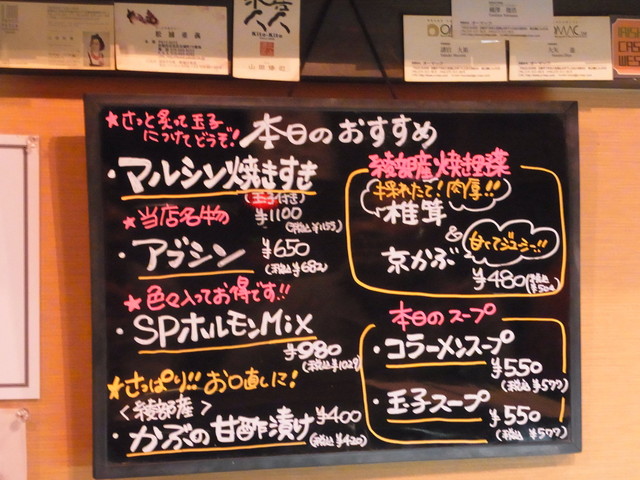 本日のおすすめ
★さっと炙って玉子
につけてどうぞ!
・マルシン焼きすき
(玉子付き)
¥1100
(税込¥1155)
★当店名物
・アブシン ¥650
(税込¥682)
★色々入ってお得です!!
・SPホルモンMix
¥980
(税込¥1029)
★さっぱり!! お口直しに!
<綾部産>
・かぶの甘酢漬け ¥400
(税込¥420)
綾部産焼き野菜
採れたて!肉厚!!
椎茸
&
甘くてジューシー!!
京かぶ
¥480(税込¥504)
本日のスープ
・コラーメンスープ
¥550
(税込¥577)
・玉子スープ
¥550
(税込¥577)